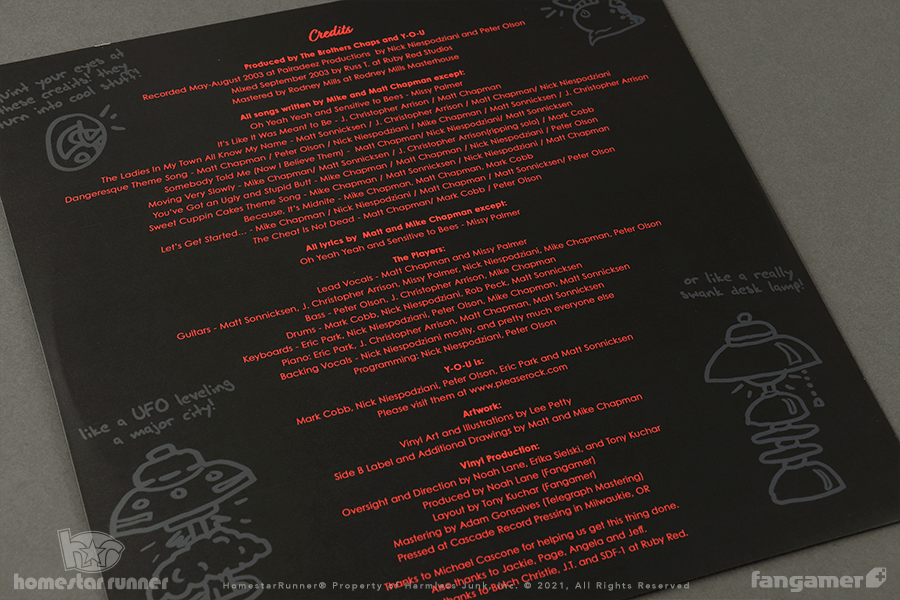 Credits
Produced by The Brothers Chaps and Y-O-U
Recorded May-August 2003 at Pairadeez Productions by Nick Niespodziani and Peter Olson
Mixed September 2003 by Russ T. at Ruby Red Studios
Mastered by Rodney Mills at Rodney Mills Masterhouse
All songs written by Mike and Matt Chapman except:
Oh Yeah Yeah and Sensitive to Bees - Missy Palmer
It's Like It Was Meant to Be - J. Christopher Arrison / Matt Chapman
The Ladies In My Town All Know My Name - Matt Sonnicksen / J. Christopher Arrison / Matt Chapman/ Nick Niespodziani
Dangeresque Theme Song - Matt Chapman / Peter Olson / Nick Niespodziani / Mike Chapman / Matt Sonnicksen / J. Christopher Arrison
Somebody Told Me (Now I Believe Them) - Matt Chapman/ Nick Niespodziani/ Matt Sonnicksen
Moving Very Slowly - Mike Chapman/ Matt Sonnicksen / J. Christopher Arrison(ripping solo) / Mark Cobb
You've Got an Ugly and Stupid Butt - Mike Chapman / Matt Chapman / Nick Niespodziani / Peter Olson
Sweet Cuppin Cakes Theme Song - Mike Chapman / Matt Sonnicksen / Nick Niespodziani / Matt Chapman
Because, It's Midnite - Mike Chapman, Matt Chapman, Mark Cobb
Let's Get Started... - Mike Chapman / Nick Niespodziani / Matt Chapman / Matt Sonnicksen/ Peter Olson
The Cheat Is Not Dead - Matt Chapman/ Mark Cobb / Peter Olson
All lyrics by Matt and Mike Chapman except:
Oh Yeah Yeah and Sensitive to Bees - Missy Palmer
The Players:
Lead Vocals - Matt Chapman and Missy Palmer
Guitars - Matt Sonnicksen, J. Christopher Arrison, Missy Palmer, Nick Niespodziani, Mike Chapman, Peter Olson
Bass - Peter Olson, J. Christopher Arrison, Mike Chapman
Drums - Mark Cobb, Nick Niespodziani, Rob Peck, Matt Sonnicksen
Keyboards - Eric Park, Nick Niespodziani, Peter Olson, Mike Chapman, Matt Sonnicksen
Piano: Eric Park, J. Christopher Arrison, Matt Chapman, Matt Sonnicksen
Backing Vocals - Nick Niespodziani mostly, and pretty much everyone else
Programming: Nick Niespodziani, Peter Olson
Y-O-U is:
Mark Cobb, Nick Niespodziani, Peter Olson, Eric Park and Matt Sonnicksen
Please visit them at www.pleaserock.com
Artwork:
Vinyl Art and Illustrations by Lee Petty
Side B Label and Additional Drawings by Matt and Mike Chapman
Vinyl Production:
Oversight and Direction by Noah Lane, Erika Sielski, and Tony Kuchar
Produced by Noah Lane (Fangamer)
Layout by Tony Kuchar (Fangamer)
Mastering by Adam Gonsalves (Telegraph Mastering)
Pressed at Cascade Record Pressing in Milwaukie, OR
Thanks to Michael Cascone for helping us get this thing done.
Also thanks to Jackie, Page, Angela and Jeff.
thanks to Butch Christie, J.T. and SDF-1 at Ruby Red.
your eyes at
these credits, they
turn into cool stuff!
or like a really
swank desk lamp!
like a UFO leveling
a major city!
h★r
homestar runner
HomestarRunner® Property of Harmless Junk, Inc. © 2021, All Rights Reserved
fangamer